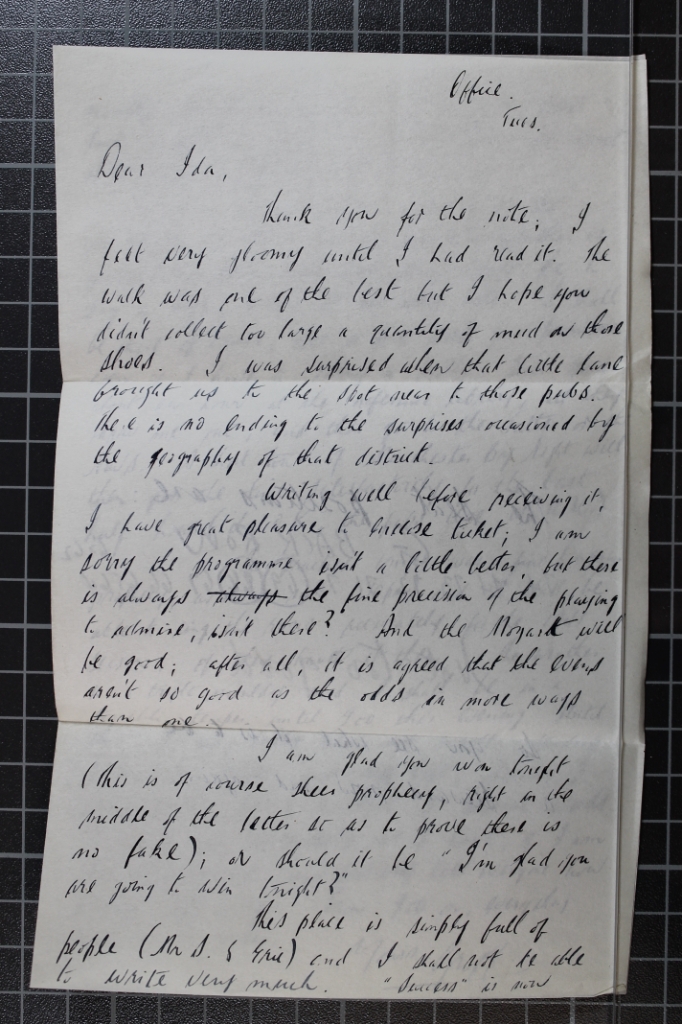 Office.
Tues.
Dear Ida,
Thank you for the note; I
felt very gloomy until I had read it. The
walk was one of the best but I hope you
didn't collect too large a quantity of mud on those
shoes. I was surprised when that little lane
brought us to the spot near to those pubs.
There is no ending to the surprises occasioned by
the geography of that district.
Writing well before receiving it,
I have great pleasure to enclose ticket; I am
sorry the programme isn't a little better, but there
is always always the fine precision of the playing
to admire, isn't there? And the Mozart will
be good; after all, it is agreed that the evens
aren't so good as the odds in more ways
than one.
I am glad you won tonight
(this is of course sheer prophecy, right in the
middle of the letter so as to prove there is
no fake); or should it be "I'm glad you
are going to win tonight?"
This place is simply full of
people (Mr S. & Eric) and I shall not be able
to write very much. "Success" is now